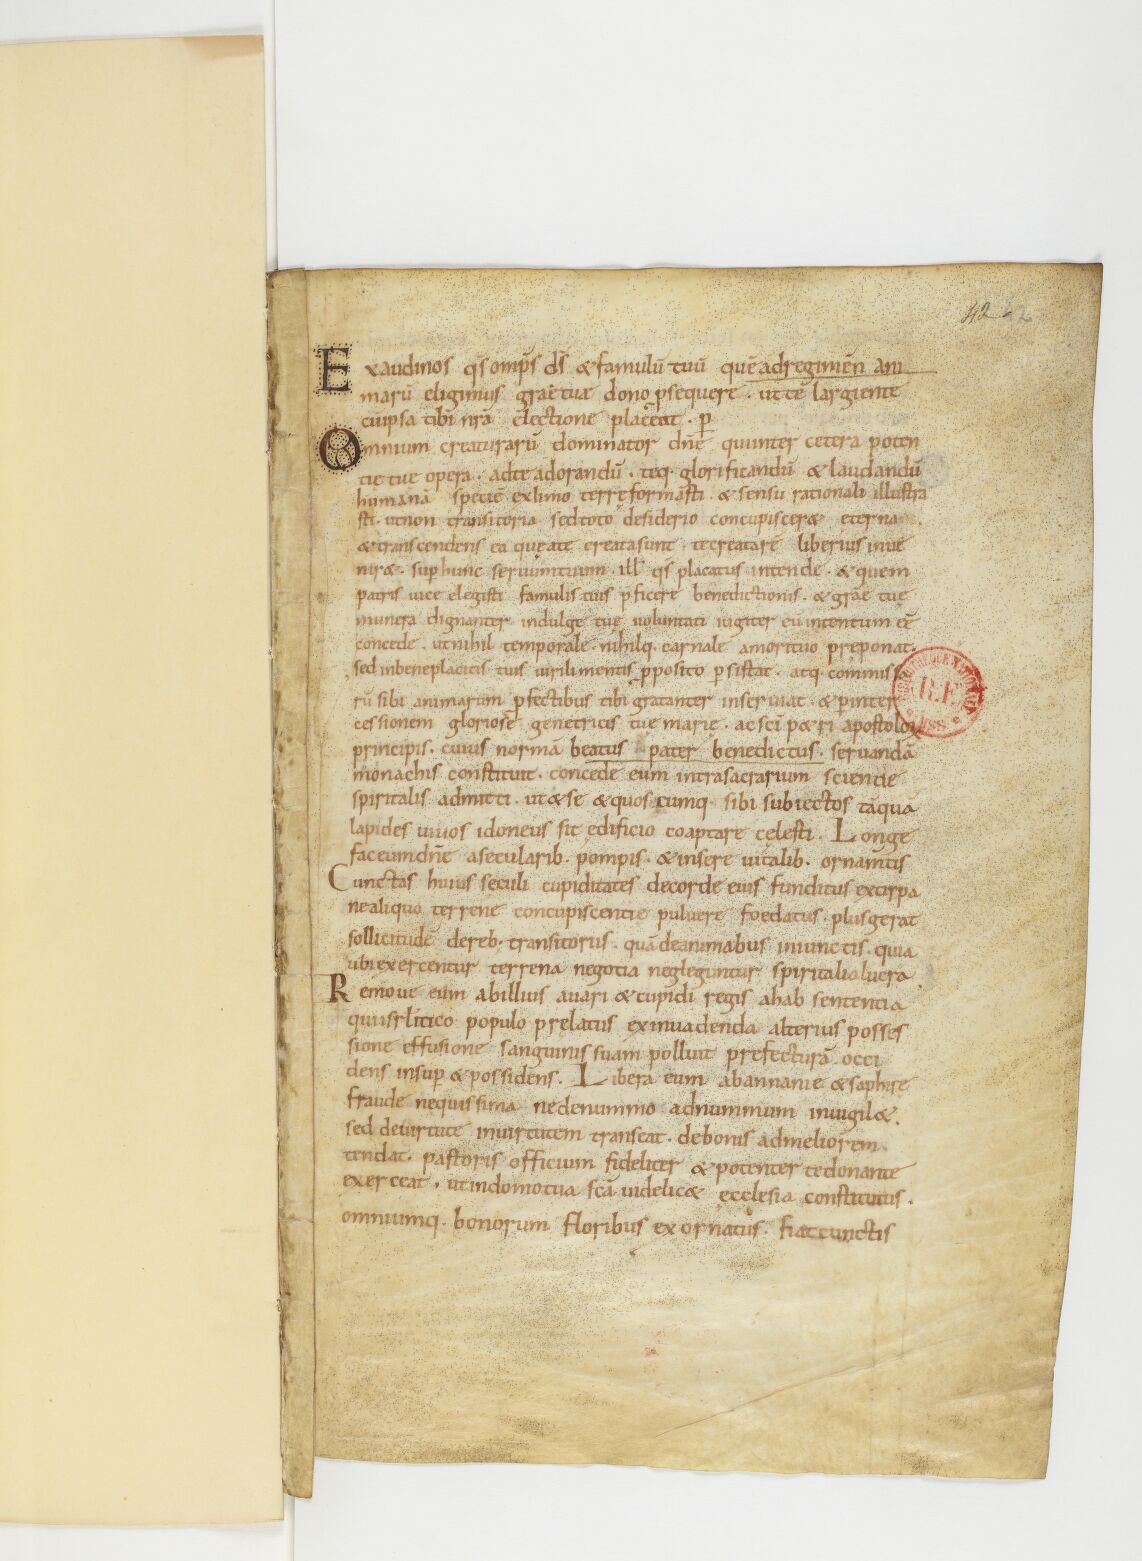 42 42
Exaudi nos q̄s omp̄s ds̄ & famulū tuū quē ad regimen ani
marū eligimus gr̄ae tuae dono ꝑsequere · ut te largiente
cū ipsa tibi nr̄a electione placeat · ꝑ
Omnium creaturarū dominator dn̄e qui inter cetera poten
tie tue opera · ad te adorandū · teq· glorificandū & laudandū
humanā speciē ex limo terre formasti · & sensu rationali illustra
sti · ut non transitoria sed toto desiderio concupiscer& eterna ·
& transcendens ea que a te creata sunt · te creatorē liberius inue
nir& · sup hunc seruum tuum · ill̄ q̄s placatus intende · & quem
patris uice elegisti famulis tuis p̄ficere benedictionis · & gr̄ae tue
munera dignanter indulge tue uoluntati iugiter eū intentum eē
concede · ut nihil temporale nihilq· carnale amori tuo preponat ·
sed in beneplacitis tuis uirili mentis ꝓposito ꝑsistat · atq· commissa
rū sibi animarum ꝓfectibus tibi gratanter inseruiat · & ꝑ inter
cessionem gloriose genetricis tue marie · ac sc̄i p&ri apostoloꝝ
principis · cuius normā beatus pater benedictus · seruandā
monachis constituit · concede eum intra sacrarium scientie
spiritalis admitti · ut & se & quoscumq· sibi subiectos tāquā
lapides uiuos idoneus sit edificio coaptare celesti · Longe
fac eum dn̄e a secularib· pompis · & insere uitalib· ornam̄tis
Cunctas huius seculi cupiditates de corde eius funditus extirpa
ne aliquo terrene concupiscentie puluere foedatus · plus gerat
sollicitudē de reb· transitoriis · quā de animabus iniunctis · quia
ubi exercentur terrena negotia negleguntur spiritalia lucra
Remoue eum ab illius auari & cupidi regis ahab sententia
qui isrl̄itico populo prelatus ex inuadenda alterius posses
sione effusione sanguinis suam polluit prefecturā · occi
dens insup & possidens · Libera eum ab annanie & saphire
fraude nequissima ne de nummo ad nummum inuigil& ·
sed de uirtute in uirtutem transeat · de bonis ad meliorem
tendat · pastoris officium fideliter & potenter te donante
exerceat · ut in domo tua sc̄a uidelic& ecclesia constitutus ·
omniumq· bonorum floribus exornatus · fiat cunctis
R.F.
MSS